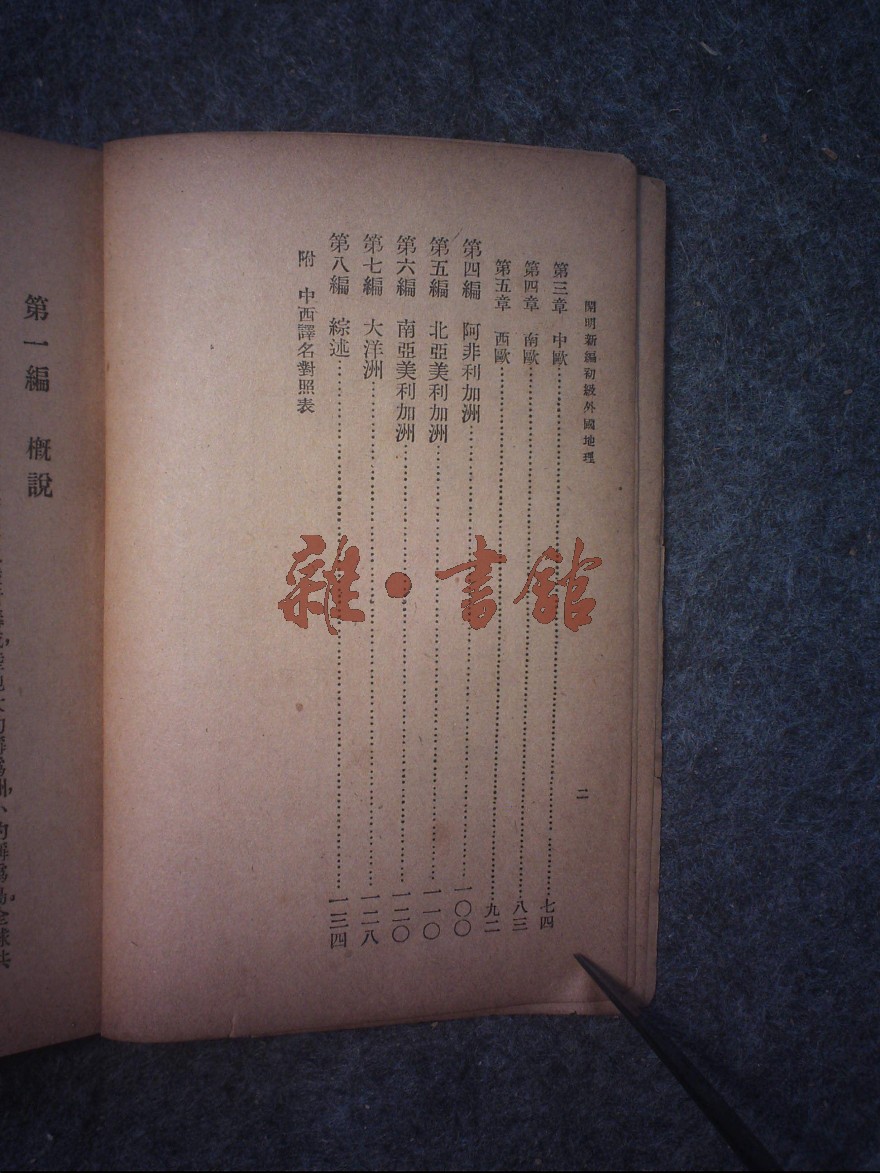 開明新編初級外國地理
二
第三章 中歐……七四
第四章 南歐……八三
第五章 西歐……九二
第四編 阿非利加洲……一〇〇
第五編 北亞美利加洲……一一〇
第六編 南亞美利加洲……一二〇
第七編 大洋洲……一二八
第八編 綜述……一三四
附 中西譯名對照表
雜·書館
第一編 概說